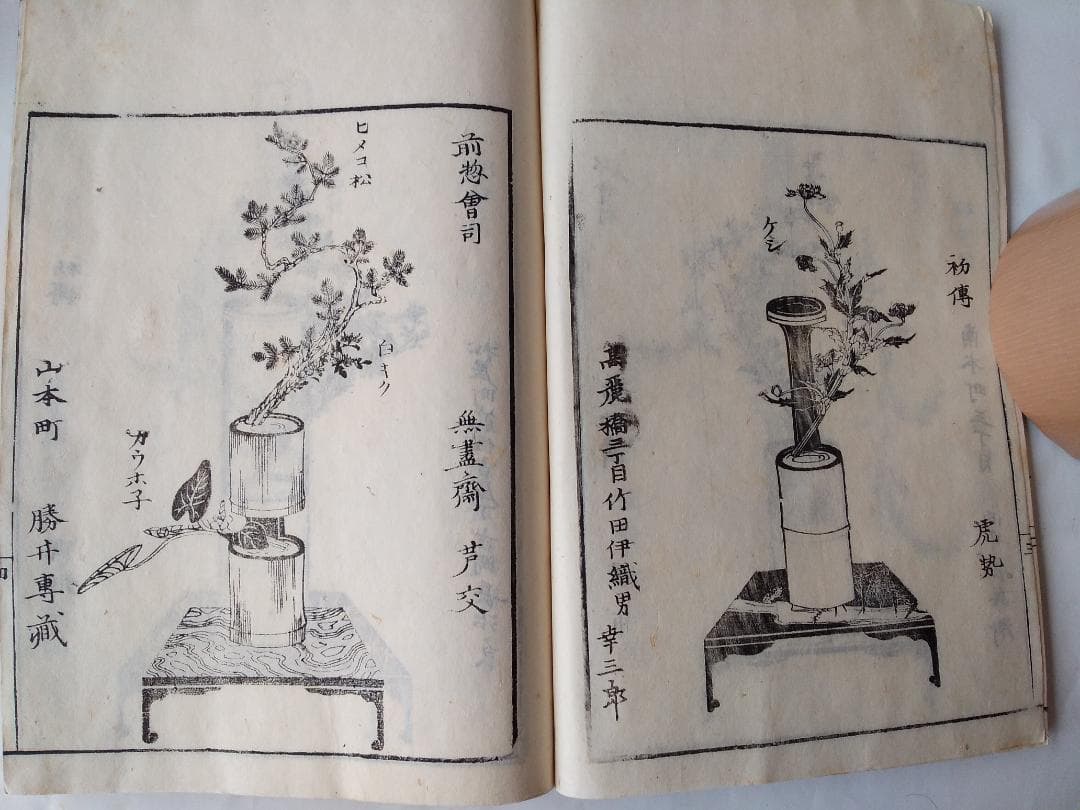 初傳
虎勢
ケシ
高麗橋三丁目竹田伊織男 幸三郎
前惣會司
無盡齋 芦交
ヒメコ松
白キク
カウホ子
山本町 勝井專藏